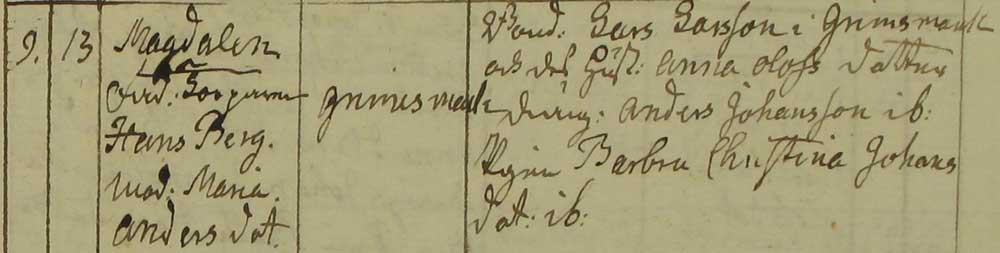 9. 13 Magdalen
Fad: Sorgaren
Hans Berg.
Mod: Maria.
anders dot.
grimsmark
Bond: Lars Larsson i grimsmark
och des Hust: anna olofs dotter
dräng: anders Johansson ib:
Pigan Barbru Christina Johans
dot: ib: